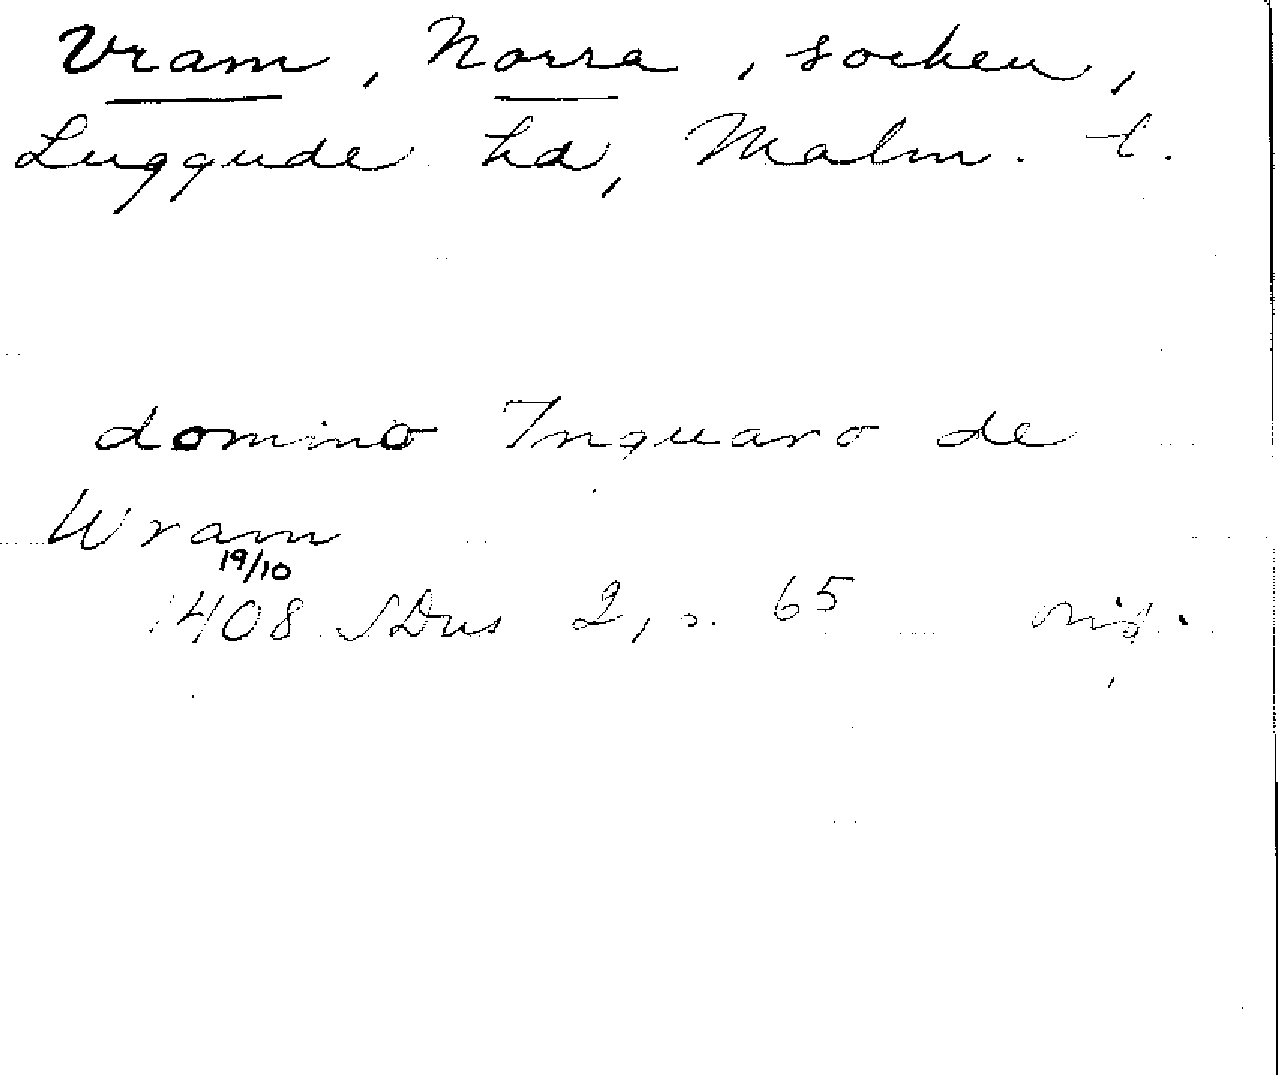 Vram, Norra, socken,
Luggude hd, Malm. l.
domino Inquaro de
Wram
19/10
1408 SDns 2, s. 65 orig.